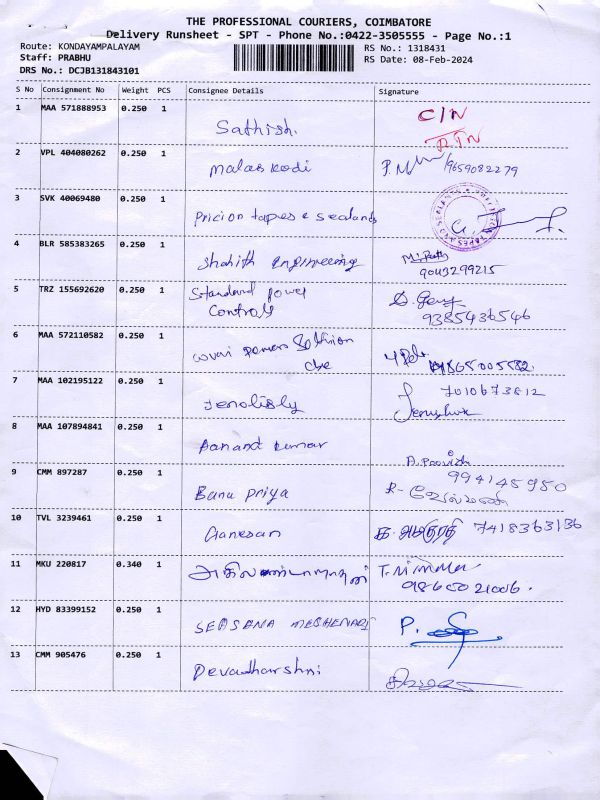 THE PROFESSIONAL COURIERS, COIMBATORE
Delivery Runsheet - SPT - Phone No.:0422-3505555 - Page No.:1
Route: KONDAYAMPALAYAM
RS No.: 1318431
Staff: PRABHU
RS Date: 08-Feb-2024
DRS No.: DCJB131843101
S No Consignment No Weight PCS Consignee Details Signature
1 MAA 571888953 0.250 1 Sathish. C/N
RTN
2 VPL 404080262 0.250 1 Malarkodi 9659082279
3 SVK 40069480 0.250 1 Pricion tapes & sealands
4 BLR 585383265 0.250 1 Shahith engineering
9043299215
5 TRZ 155692620 0.250 1 Standard power
Controls 9385436546
6 MAA 572110582 0.250 1
cbe
7 MAA 102195122 0.250 1 7010673812
8 MAA 107894841 0.250 1 Aanand kumar
994145950
9 CMM 897287 0.250 1 Banu Priya
10 TVL 3239461 0.250 1 Ganesan 7418363136
11 MKU 220817 0.340 1
12 HYD 83399152 0.250 1
13 CMM 905476 0.250 1 Devadharshni